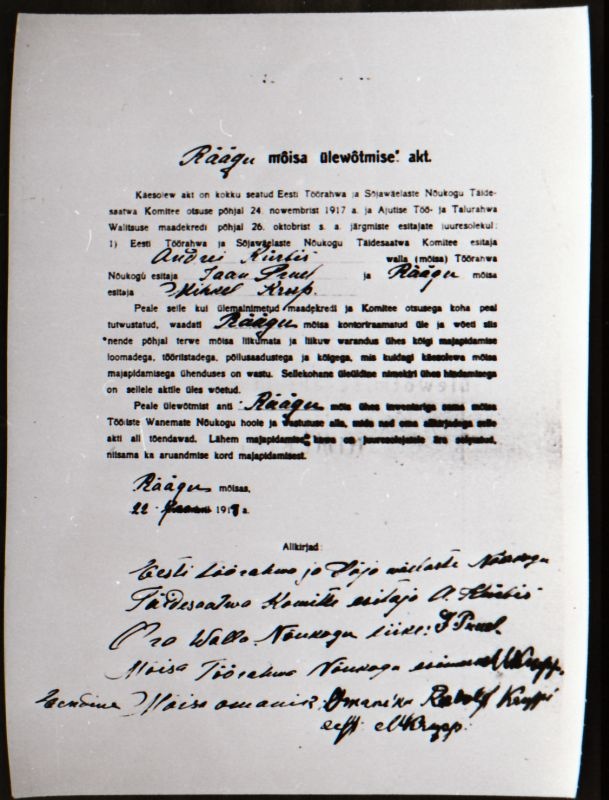 Räägu mõisa ülewõtmise akt.
Käesolew akt on kokku seatud Eesti Töörahwa ja Sõjawäelaste Nõukogu Täide-
saatwa Komitee otsuse põhjal 24. nowembrist 1917 a. ja Ajutise Töö- ja Talurahwa
Walitsuse maadekredi põhjal 26. oktobrist s. a. järgmiste esitajate juuresolekul:
1) Eesti Töörahwa ja Sõjawäelaste Nõukogu Täidesaatwa Komitee esitaja
Andrei Kürbis walla (mõisa) Töörahwa
Nõukogú esitaja Jaan Pruel ja Räägu mõisa
esitaja Mihkel Krup.
Peale selle kui ülemalnimetud maadekredi ja Komitee otsusega koha peal
tutwustatud, waadati Räägu mõisa kontoriraamatud üle ja wõeti siis
nende põhjal terwe mõisa liikumata ja liikuw warandus ühes kõigi majapidamise
loomadega, tööriistadega, põllusaadustega ja kõigega, mis kuidagi käesolewa mõisa
majapidamisega ühenduses on wastu. Sellekohane üleüldine nimekiri ühes hindamisega
on sellele aktile üles wõetud.
Peale ülewõtmist anti Räägu mõis ühes inwentariga sama mõisa
Tööliste Wanemate Nõukogu hoole ja wastutuse alla, mida nad oma allkirjadega selle
akti all tõendawad. Lähem majapidamise kawa on juuresolejatele ära seletatud,
niisama ka aruandmise kord majapidamisest.
Räägu mõisas,
22 1918 a.
Allkirjad:
Eesti töörahwa ja Sõja wäelaste Nõukogu
Täidesaatwa Komitte esitaja A. Kürbis
Oro Walla Nõukogu liige: J Pruel.
Mõisa Töörahwa Nõukogu esimees MKrupp.
Eendine Mõisa omanik: Omaniku Rudolf Kruppi
eest MKrupp.